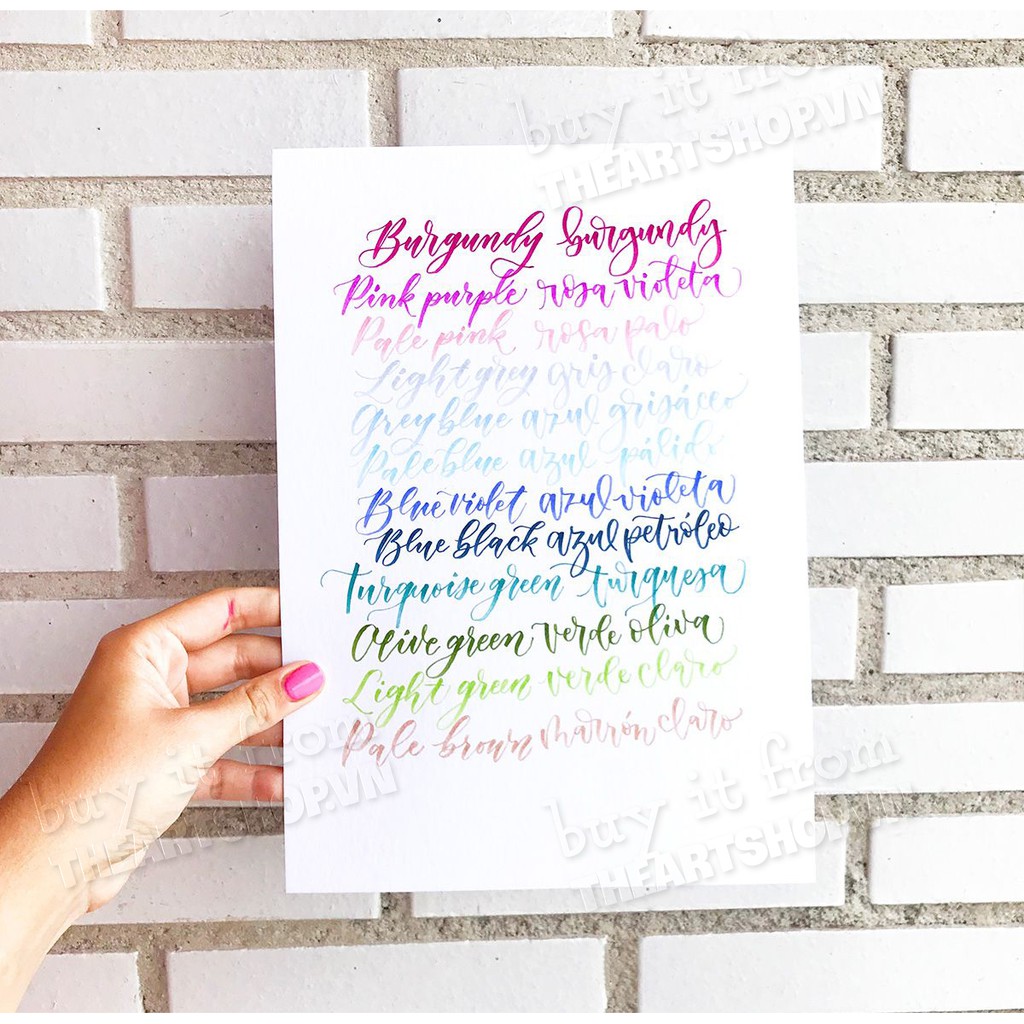 buy it from
THEARTSHOP.VN
Burgundy burgundy
Pink purple rosa violeta
Pale pink rosa palo
Light grey gris claro
Grey blue azul grisáceo
Pale blue azul pálido
Blue violet azul violeta
Blue black azul petróleo
Turquoise green turquesa
Olive green verde oliva
Light green verde claro
Pale brown marrón claro
buy it from
THEARTSHOP.VN
buy it from
THEARTSHOP.VN